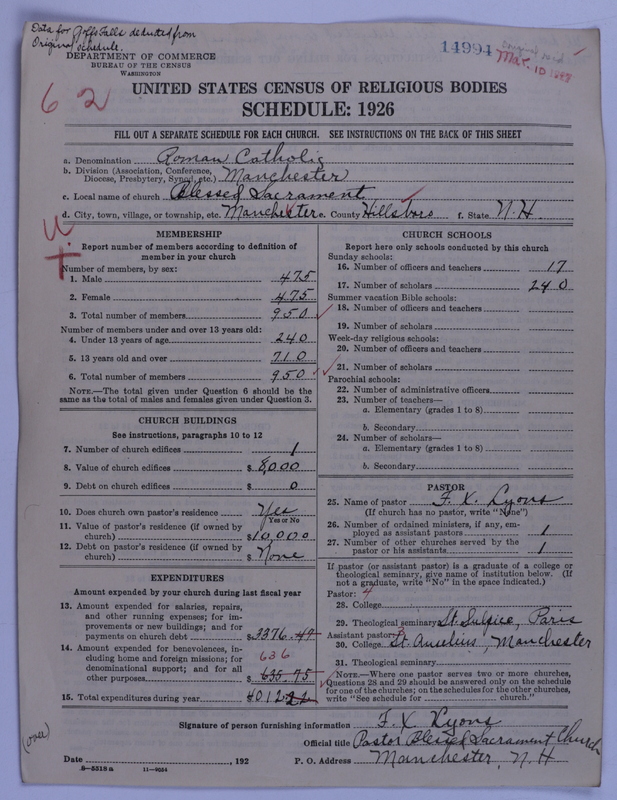 Data for Goffs Falls deducted from
Original schedule.
DEPARTMENT OF COMMERCE
BUREAU OF THE CENSUS
WASHINGTON
14994
Original rec'd
Mar. 10
6 2
UNITED STATES CENSUS OF RELIGIOUS BODIES
SCHEDULE: 1926
FILL OUT A SEPARATE SCHEDULE FOR EACH CHURCH. SEE INSTRUCTIONS ON THE BACK OF THIS SHEET
a. Denomination Roman Catholic
b. Division (Association, Conference,
Diocese, Presbytery, Synod, etc.) Manchester
c. Local name of church Blessed Sacrament
d. City, town, village, or township, etc. Manchester e. County Hillsboro f. State N.H.
MEMBERSHIP
Report number of members according to definition of
member in your church
Number of members, by sex:
1. Male 475
2. Female 475
3. Total number of members 950
Number of members under and over 13 years old:
4. Under 13 years of age 240
5. 13 years old and over 710
6. Total number of members 950
NOTE.—The total given under Question 6 should be the
same as the total of males and females given under Question 3.
CHURCH BUILDINGS
See instructions, paragraphs 10 to 12
7. Number of church edifices 1
8. Value of church edifices $ 8,000
9. Debt on church edifices $ 0
10. Does church own pastor's residence Yes
Yes or No
11. Value of pastor's residence (if owned by
church) $10,000
12. Debt on pastor's residence (if owned by
church) $ None
EXPENDITURES
Amount expended by your church during last fiscal year
13. Amount expended for salaries, repairs,
and other running expenses; for im-
provements or new buildings; and for
payments on church debt $3376.49
14. Amount expended for benevolences, in-
cluding home and foreign missions; for
denominational support; and for all
other purposes $ 635.75
636
15. Total expenditures during year 4012.24
CHURCH SCHOOLS
Report here only schools conducted by this church
Sunday schools:
16. Number of officers and teachers 17
17. Number of scholars 240
Summer vacation Bible schools:
18. Number of officers and teachers
19. Number of scholars
Week-day religious schools:
20. Number of officers and teachers
21. Number of scholars
Parochial schools:
22. Number of administrative officers
23. Number of teachers—
a. Elementary (grades 1 to 8)
b. Secondary
24. Number of scholars—
a. Elementary (grades 1 to 8)
b. Secondary
PASTOR
25. Name of pastor F. X. Lyons
(If church has no pastor, write "None")
26. Number of ordained ministers, if any, em-
ployed as assistant pastors 1
27. Number of other churches served by the
pastor or his assistants 1
If pastor (or assistant pastor) is a graduate of a college or
theological seminary, give name of institution below. (If
not a graduate, write "No" in the space indicated.)
Pastor: 4
28. College
29. Theological seminary St. Sulpice, Paris
Assistant pastor: 3
30. College St. Anselms, Manchester
31. Theological seminary
NOTE.—Where one pastor serves two or more churches,
Questions 28 and 29 should be answered only on the schedule
for one of the churches; on the schedules for the other churches,
write "See schedule for church."
Signature of person furnishing information F. X. Lyons
Official title Pastor Blessed Sacrament Church
Date , 192 P. O. Address Manchester, N.H.
8—5318a 11—9034
(over)